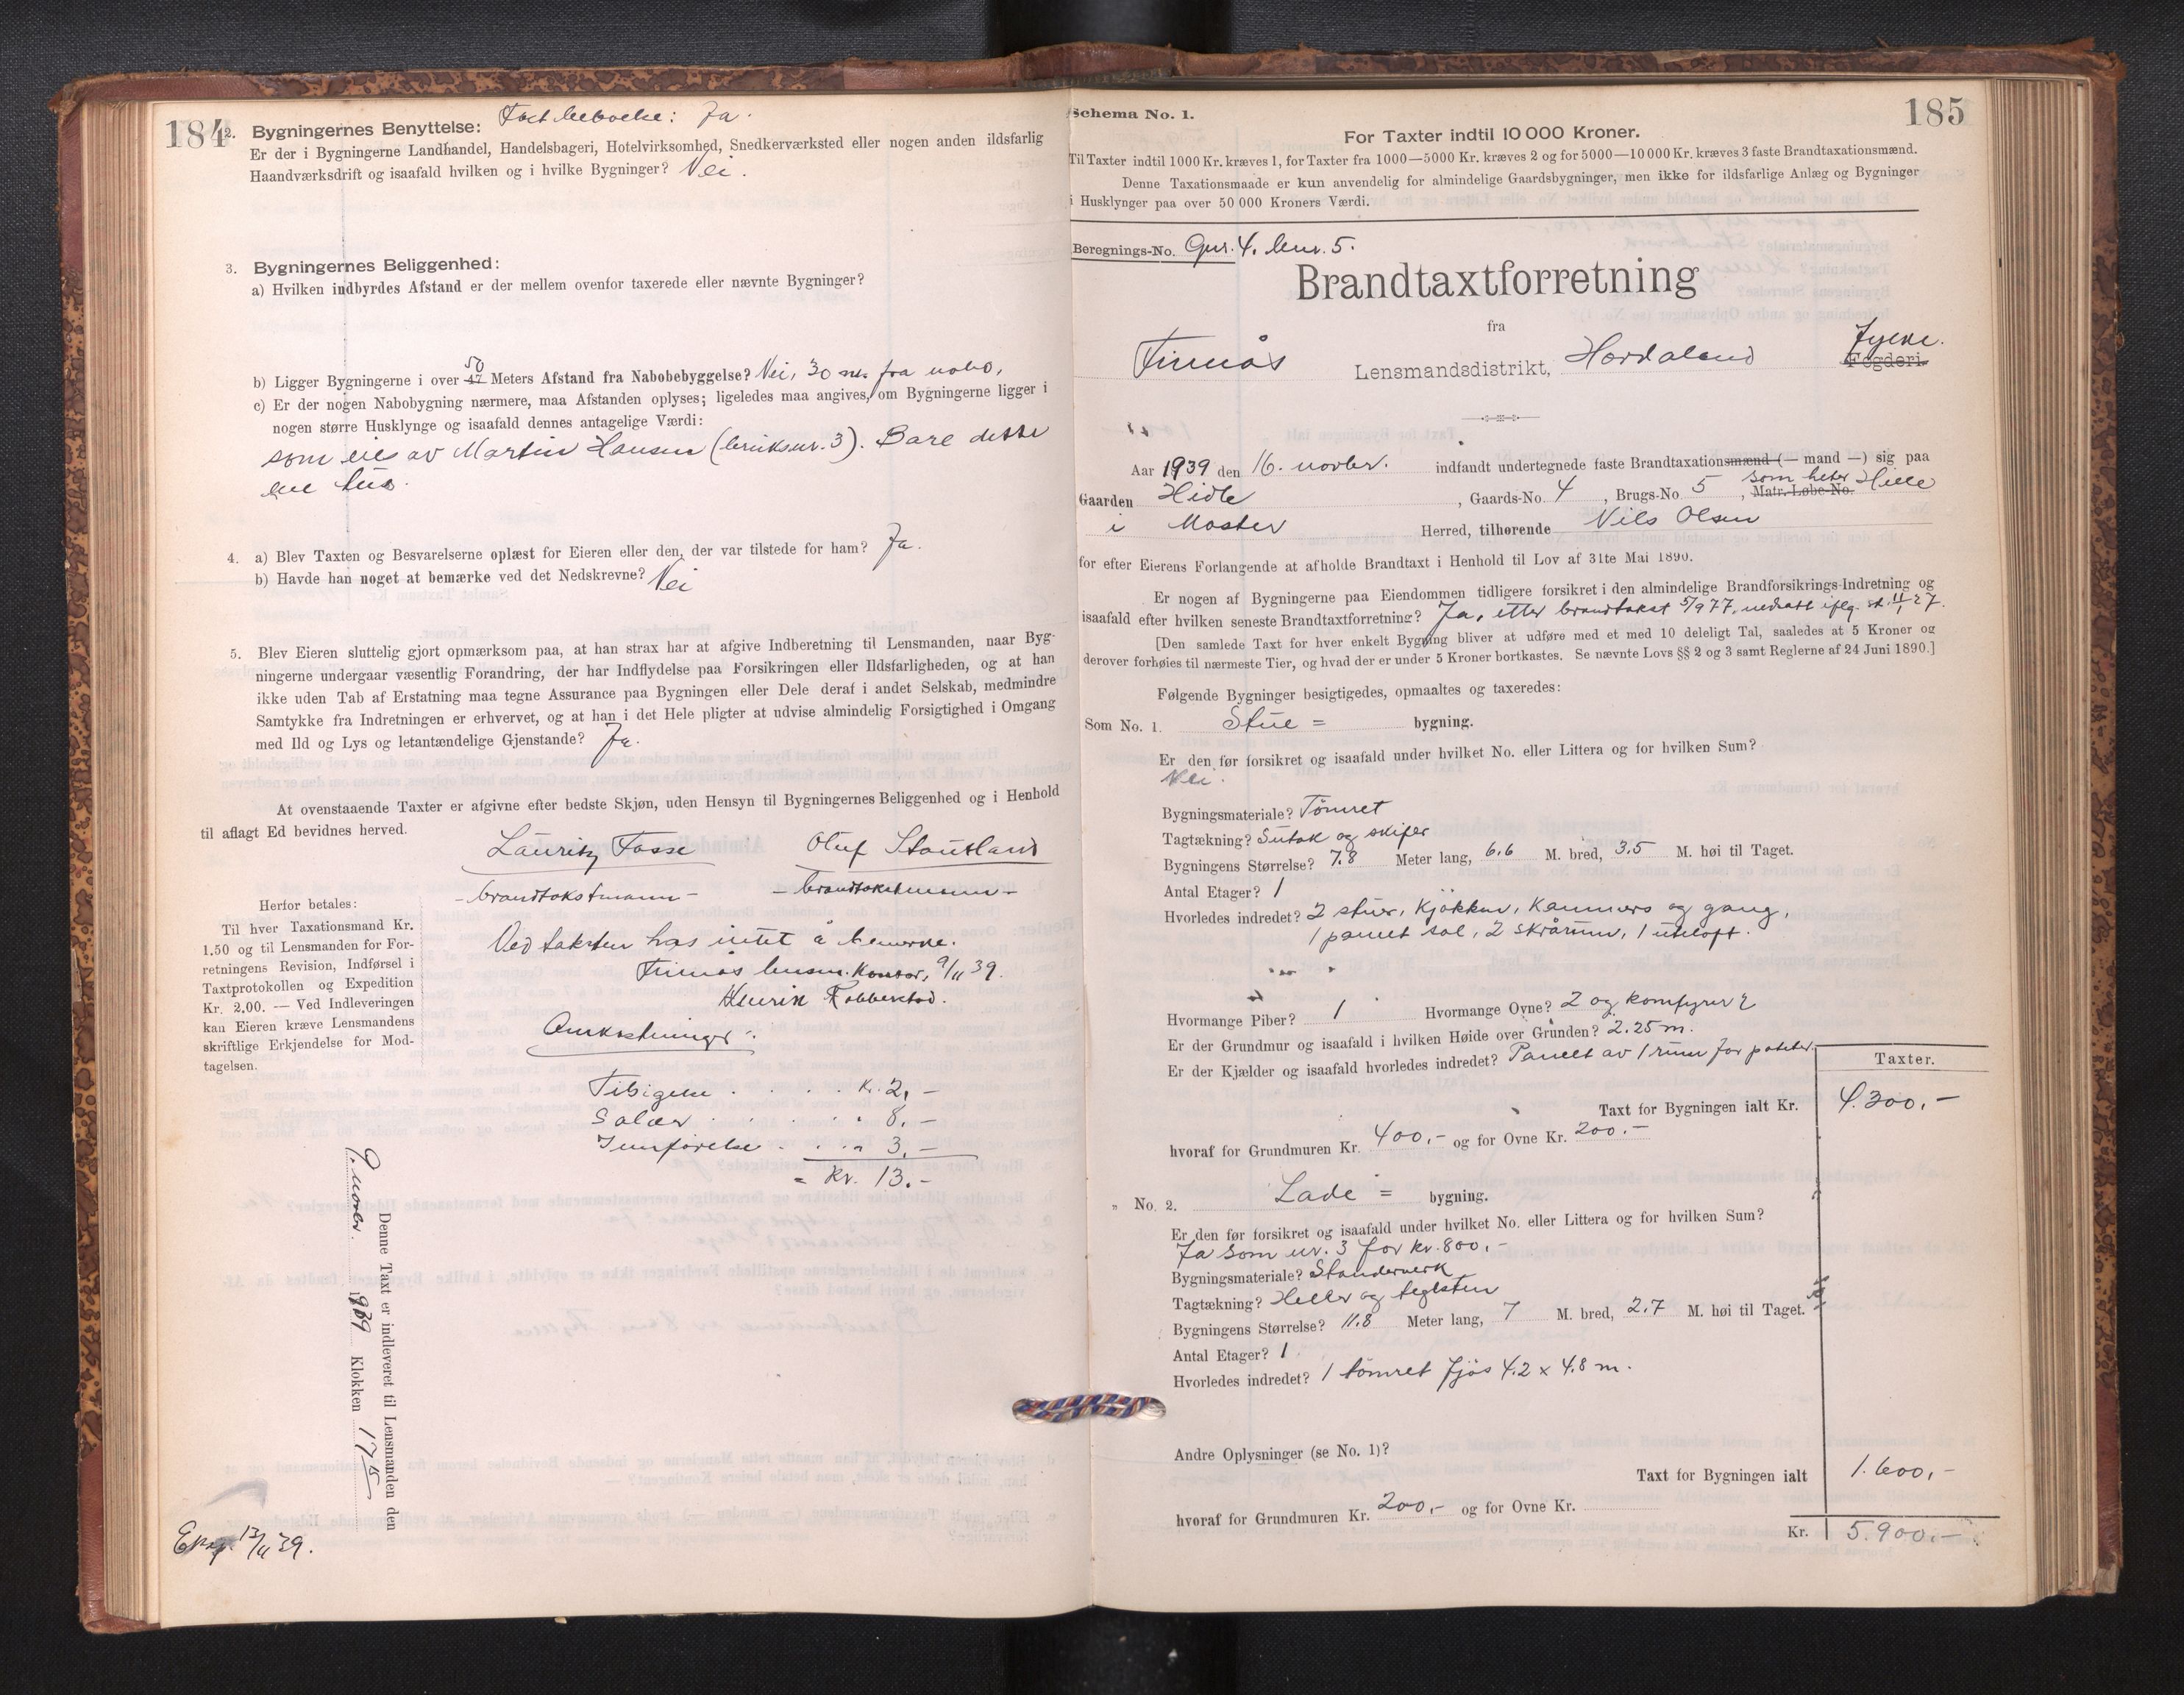 184
2. Bygningernes Benyttelse: Fast bebodde: Ja.
Er der i Bygningerne Landhandel, Handelsbageri, Hotelvirksomhed, Snedkerværksted eller nogen anden ildsfarlig
Haandværksdrift og isaafald hvilken og i hvilke Bygninger? Nei.
3. Bygningernes Beliggenhed:
a) Hvilken indbyrdes Afstand er der mellem ovenfor taxerede eller nævnte Bygninger?
50
b) Ligger Bygningerne i over 47 Meters Afstand fra Nabobebyggelse? Nei, 30 m. fra nabo,
c) Er der nogen Nabobygning nærmere, maa Afstanden oplyses; ligeledes maa angives, om Bygningerne ligger i
nogen større Husklynge og isaafald dennes antagelige Værdi:
som eies av Martin Hansen (bruksnr. 3). Bare dette
ene hus.
4. a) Blev Taxten og Besvarelserne oplæst for Eieren eller den, der var tilstede for ham? Ja.
b) Havde han noget at bemærke ved det Nedskrevne? Nei
5. Blev Eieren sluttelig gjort opmærksom paa, at han strax har at afgive Indberetning til Lensmanden, naar Byg-
ningerne undergaar væsentlig Forandring, der har Indflydelse paa Forsikringen eller Ildsfarligheden, og at han
ikke uden Tab af Erstatning maa tegne Assurance paa Bygningen eller Dele deraf i andet Selskab, medmindre
Samtykke fra Indretningen er erhvervet, og at han i det Hele pligter at udvise almindelig Forsigtighed i Omgang
med Ild og Lys og letantændelige Gjenstande? Ja.
At ovenstaaende Taxter er afgivne efter bedste Skjøn, uden Hensyn til Bygningernes Beliggenhed og i Henhold
til aflagt Ed bevidnes herved.
Lauritz Tosse Oluf Stautland
- brandtakstmann - - brandtakstmann -
Herfor betales:
Til hver Taxationsmand Kr.
1.50 og til Lensmanden for For-
retningens Revision, Indførsel i
Taxtprotokollen og Expedition
Kr. 2.00. — Ved Indleveringen
kan Eieren kræve Lensmandens
skriftlige Erkjendelse for Mod-
tagelsen.
Ved taksten has intet å bemerke.
Finnås lensm. kontor, 9/11 39.
Henrik Robberstad.
Omkostninger:
Tilsigelse . . . . kr. 2,-
Salær . . . . " 8,-
Innførelse . . . " 3,-
= kr. 13.-
Denne Taxt er indleveret til Lensmanden den
9. novbr. 1939 Klokken 17 15
Eksp. 13/11 39.
Schema No. 1.
185
For Taxter indtil 10 000 Kroner.
Til Taxter indtil 1000 Kr. kræves 1, for Taxter fra 1000—5000 Kr. kræves 2 og for 5000—10 000 Kr. kræves 3 faste Brandtaxationsmænd.
Denne Taxationsmaade er kun anvendelig for almindelige Gaardsbygninger, men ikke for ildsfarlige Anlæg og Bygninger
i Husklynger paa over 50 000 Kroners Værdi.
Beregnings-No. Gnr. 4. bnr. 5.
Brandtaxtforretning
fra
Finnås Lensmandsdistrikt, Hordaland Fylke.
Fogderi.
Aar 1939 den 16. novbr. indfandt undertegnede faste Brandtaxationsmænd (— mand —) sig paa
Gaarden Hidle , Gaards-No. 4 , Brugs-No. 5 , Matr.-Løbe-No. som heter Hille
i Moster Herred, tilhørende Nils Olsen
for efter Eierens Forlangende at afholde Brandtaxt i Henhold til Lov af 31te Mai 1890.
Er nogen af Bygningerne paa Eiendommen tidligere forsikret i den almindelige Brandforsikrings-Indretning og
isaafald efter hvilken seneste Brandtaxtforretning? Ja, etter brandtakst 5/9 77, nedsatt iflg.
[Den samlede Taxt for hver enkelt Bygning bliver at udføre med et med 10 deleligt Tal, saaledes at 5 Kroner og
derover forhøies til nærmeste Tier, og hvad der er under 5 Kroner bortkastes. Se nævnte Lovs §§ 2 og 3 samt Reglerne af 24 Juni 1890.]
Følgende Bygninger besigtigedes, opmaaltes og taxeredes:
Som No. 1. Stue = bygning.
Er den før forsikret og isaafald under hvilket No. eller Littera og for hvilken Sum?
Nei.
Bygningsmateriale? Tømret
Tagtækning? Sutak og skifer
Bygningens Størrelse? 7.8 Meter lang, 6.6 M. bred, 3.5 M. høi til Taget.
Antal Etager? 1
Hvorledes indredet? 2 stuer, kjøkken, kammers og gang,
1 panelt sal, 2 skrårum, 1 uteloft.
Hvormange Piber? 1 Hvormange Ovne? 2 og komfyrer 2
Er der Grundmur og isaafald i hvilken Høide over Grunden? 2.25 m.
Er der Kjælder og isaafald hvorledes indredet? Panelt av 1 rum for poteter.
Taxter.
Taxt for Bygningen ialt Kr. 4.300,-
hvoraf for Grundmuren Kr. 400,- og for Ovne Kr. 200.-
" No. 2. Lade = bygning.
Er den før forsikret og isaafald under hvilket No. eller Littera og for hvilken Sum?
Ja som nr. 3 for kr. 800,-
Bygningsmateriale? Standerverk
Tagtækning? Heller og teglsten
Bygningens Størrelse? 11.8 Meter lang, 7 M. bred, 2.7 M. høi til Taget.
Antal Etager? 1
Hvorledes indredet? 1 tømret fjøs 4.2 x 4.8 m.
Andre Oplysninger (se No. 1)?
Taxt for Bygningen ialt 1.600,-
hvoraf for Grundmuren Kr. 200,- og for Ovne Kr.
Kr. 5.900.-